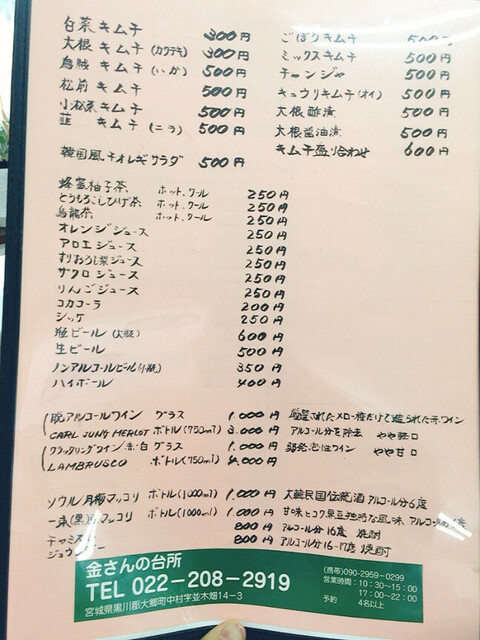 白菜キムチ 300円
大根キムチ(カクテキ) 300円
烏賊キムチ(いか) 500円
松前キムチ 500円
小松菜キムチ 500円
韮キムチ(ニラ) 500円
韓国風チオレギサラダ 500円
ごぼうキムチ 500円
ミックスキムチ 500円
チャンジャ 500円
キュウリキムチ(オイ) 500円
大根酢漬 500円
大根醤油漬 500円
キムチ盛り合わせ 600円
蜂蜜柚子茶 ホット、クール 250円
とうもろこしひげ茶 ホット、クール 250円
烏龍茶 ホット、クール 250円
オレンジジュース 250円
アロエジュース 250円
すりおろし梨ジュース 250円
ザクロジュース 250円
りんごジュース 250円
コカコーラ 200円
シッケ 250円
瓶ビール(大瓶) 600円
生ビール 500円
ノンアルコールビール(小瓶) 350円
ハイボール 400円
脱アルコールワイン グラス 1.000円 厳選されたメロー種だけで造られた赤ワイン
CARL JUNG MERLOT ボトル(750ml) 3.000円 アルコール分を除去 やや軽口
クラッタリングワイン赤・白 グラス 1.000円 弱発泡性ワイン やや甘口
LAMBRUSCO ボトル(750ml) 4.000円
ソウル月梅マッコリ ボトル(1000ml) 1.000円 大韓民国伝統酒 アルコール分6度
一東(黒)マッコリ ボトル(1000ml) 1.000円 甘味とコク黒豆独特な風味 アルコール
チャミスル 800円 アルコール分16度 焼酎
ジョウンデー 800円 アルコール分16~17度 焼酎
金さんの台所
TEL 022-208-2919
宮城県黒川郡大郷町中村字並木畑14-3
(携帯)090-2959-0299
営業時間:10:30~15:00
17:00~22:00
予約 4名以上